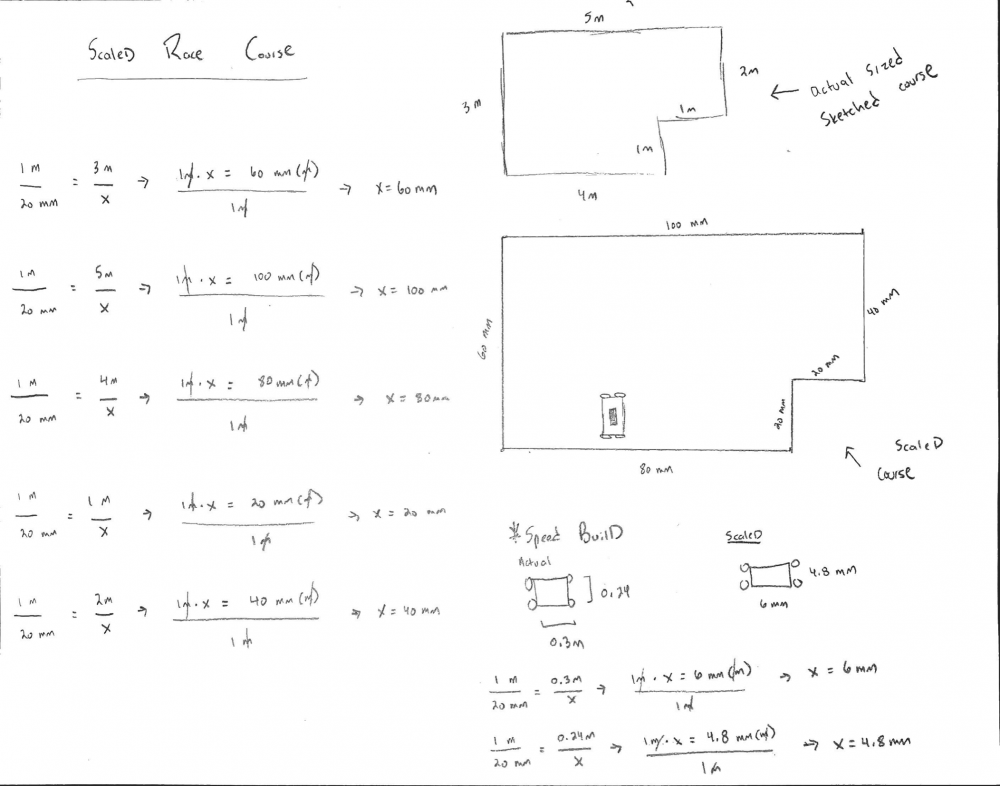 ScaleD Race Course
1 m / 20 mm = 3 m / x → 1m · x = 60 mm (m) / 1m → x = 60 mm
1 m / 20 mm = 5m / x → 1m · x = 100 mm (m) / 1m → x = 100 mm
1 m / 20 mm = 4m / x → 1m · x = 80 mm (m) / 1m → x = 80mm
1 m / 20 mm = 1 m / x → 1m · x = 20 mm (m) / 1m → x = 20 mm
1 m / 20 mm = 2m / x → 1m · x = 40 mm (m) / 1m → x = 40 mm
5m
3 m
2m
1m
1m
4m
← Actual Sized
Sketched course
100 mm
60 mm
40 mm
20 mm
20 mm
80 mm
ScaleD
Course
* Speed BuilD
Actual
0.24
0.3m
ScaleD
4.8 mm
6 mm
1 m / 20 mm = 0.3m / x → 1m · x = 6 mm (m) / 1m → x = 6 mm
1 m / 20 mm = 0.24m / x → 1m · x = 4.8 mm (m) / 1m → x = 4.8 mm